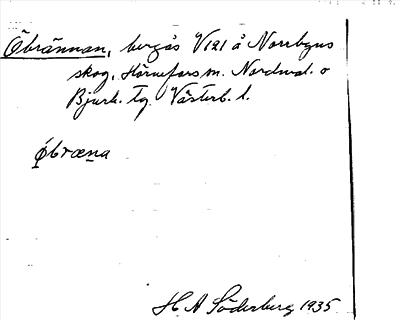 Öbrännan, bergås V121 å Norrbyns
skog, Hörnefors m. Nordmal. o
Bjurh. tg. Västerb. l.
Öbræna
H A Söderberg 1935